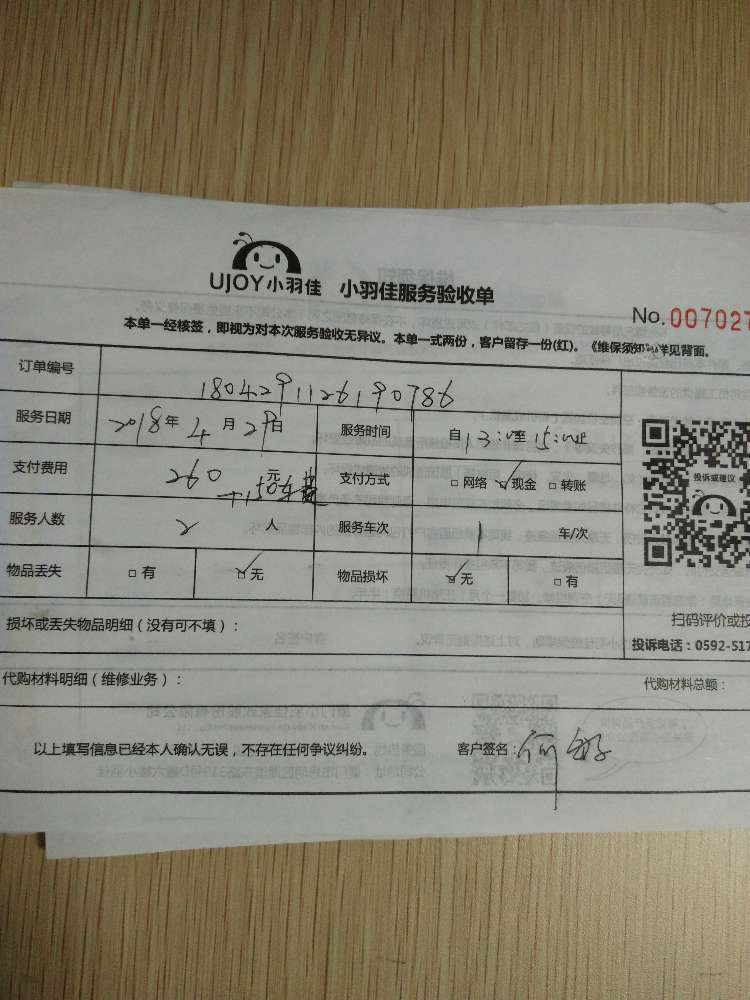 UJOY小羽佳 小羽佳服务验收单
No.007027
本单一经核签，即视为对本次服务验收无异议。本单一式两份，客户留存一份(红)。《维保须知》详见背面。
订单编号 1804291126190786
服务日期 2018年4月29日 服务时间 自13:00至15:00止
支付费用 260元 支付方式 □网络 ☑现金 □转账
+150
服务人数 2人 服务车次 1 车/次
物品丢失 □有 ☑无 物品损坏 ☑无 □有
投诉或建议
损坏或丢失物品明细（没有可不填）：
扫码评价或投
投诉电话：0592-517
代购材料明细（维修业务）： 代购材料总额：
以上填写信息已经本人确认无误，不存在任何争议纠纷。 客户签名：何